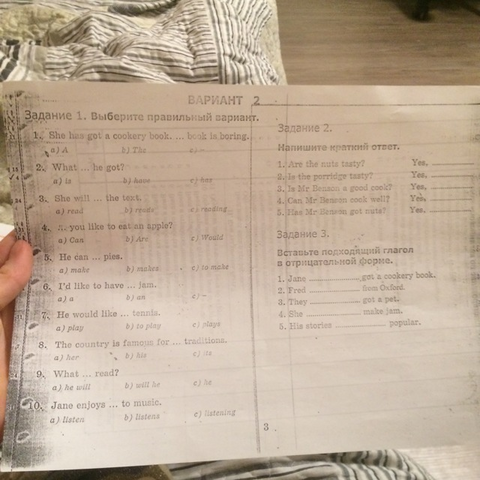 ВАРИАНТ 2
Задание 1. Выберите правильный вариант.
1. She has got a cookery book. ... book is boring.
a) A b) The c) –
2. What ... he got?
a) is b) have c) has
3. She will ... the text.
a) read b) reads c) reading
4. ... you like to eat an apple?
a) Can b) Are c) Would
5. He can ... pies.
a) make b) makes c) to make
6. I'd like to have ... jam.
a) a b) an c) –
7. He would like ... tennis.
a) play b) to play c) plays
8. The country is famous for ... traditions.
a) her b) his c) its
9. What ... read?
a) he will b) will he c) he
10. Jane enjoys ... to music.
a) listen b) listens c) listening
Задание 2.
Напишите краткий ответ.
1. Are the nuts tasty? Yes, ______
2. Is the porridge tasty? Yes, ______
3. Is Mr Benson a good cook? Yes, ______
4. Can Mr Benson cook well? Yes, ______
5. Has Mr Benson got nuts? Yes, ______
Задание 3.
Вставьте подходящий глагол
в отрицательной форме.
1. Jane ______ got a cookery book.
2. Fred ______ from Oxford.
3. They ______ got a pet.
4. She ______ make jam.
5. His stories ______ popular.
3